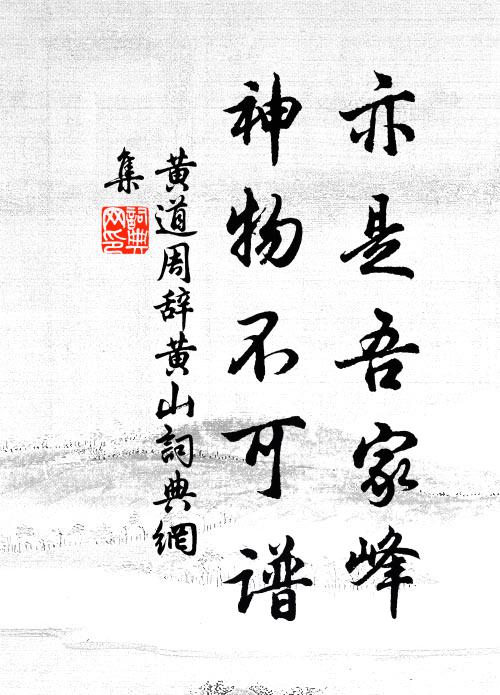 亦是吾家峰
神物不可谱
黄道周辞黄山詞典網
集
詞典网印